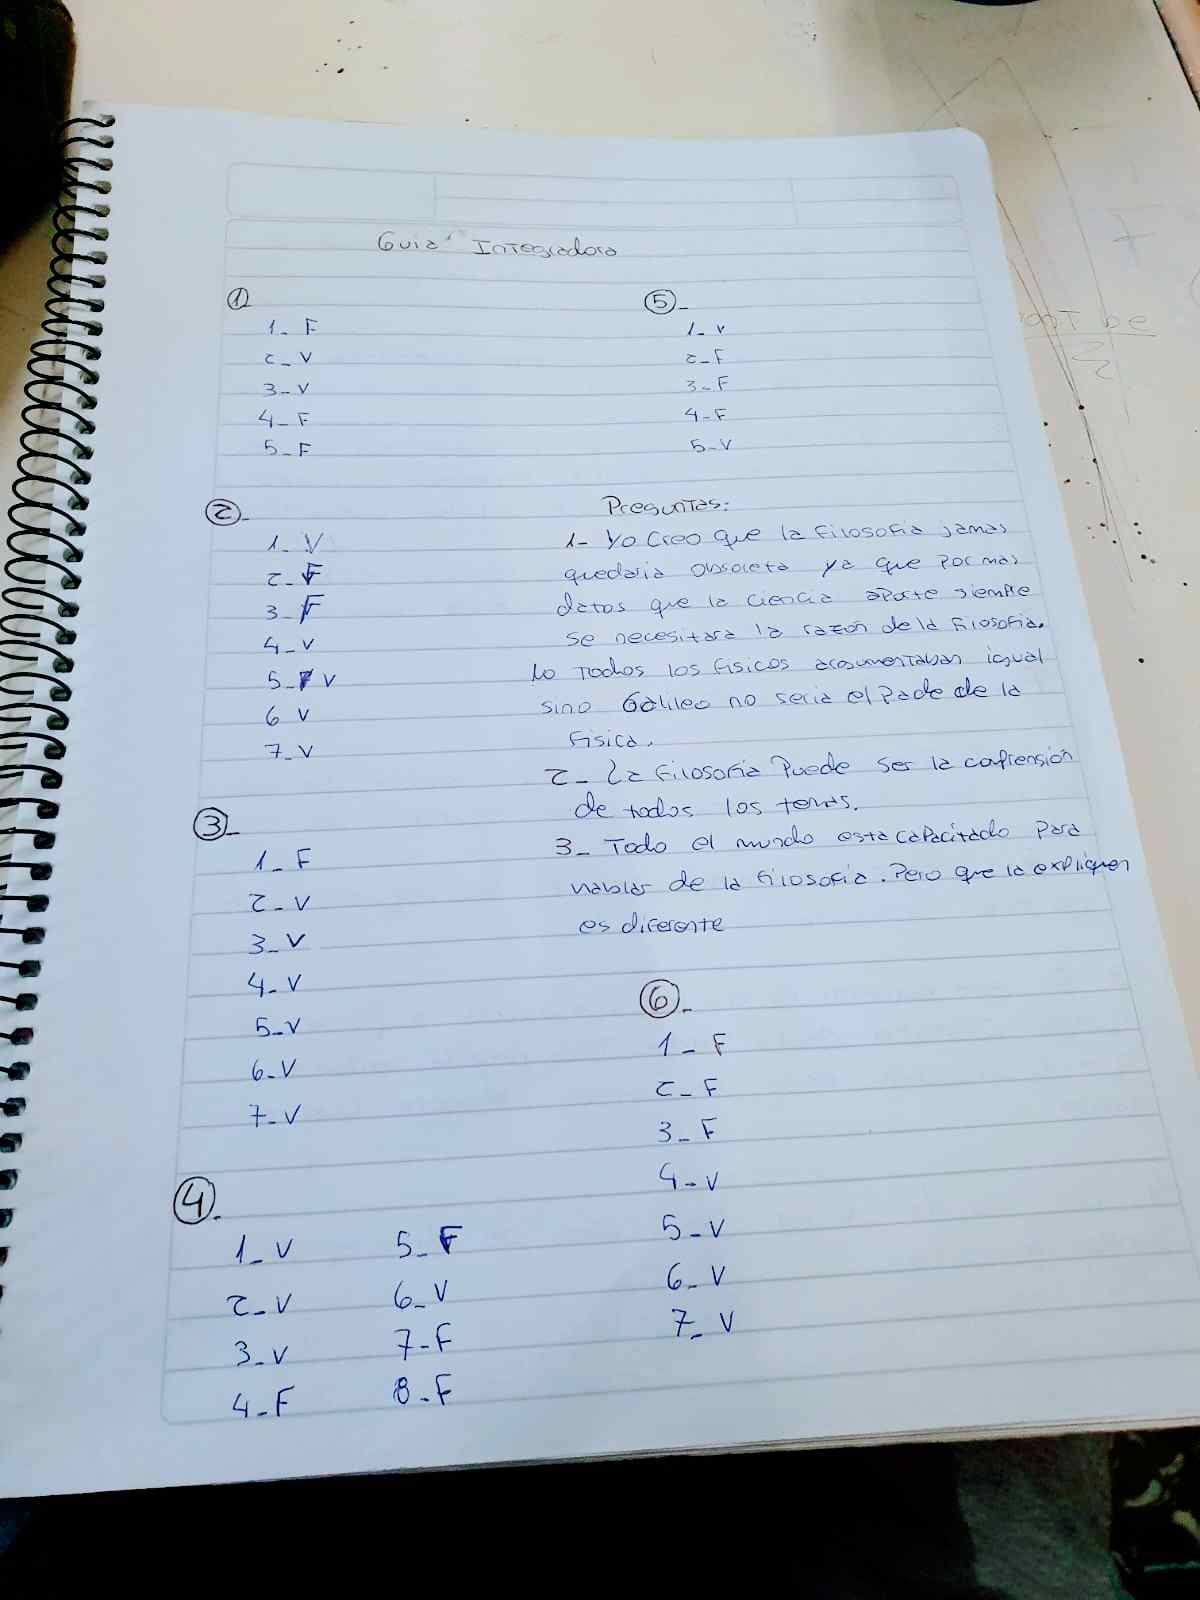 Guia Integradora
1
1- F
2- V
3- V
4- F
5- F
2-
1- V
2- F
3- F
4- V
5- V
6 V
7- V
3-
1- F
2- V
3- V
4- V
5- V
6- V
7- V
4-
1- V
2- V
3- V
4- F
5- F
6- V
7- F
8- F
5-
1- V
2- F
3- F
4- F
5- V
Preguntas:
1- Yo creo que la filosofia jamas
quedaria obsoleta ya que por mas
datos que la ciencia aporte siempre
se necesitara la razon de la filosofia.
No todos los fisicos argumentaban igual
sino Galileo no seria el Pade de la
Fisica.
2- La filosofia Puede ser la comprension
de todos los temas.
3- Todo el mundo esta capacitado para
hablar de la filosofia. Pero que la expliquen
es diferente
6-
1- F
2- F
3- F
4- V
5- V
6- V
7- V